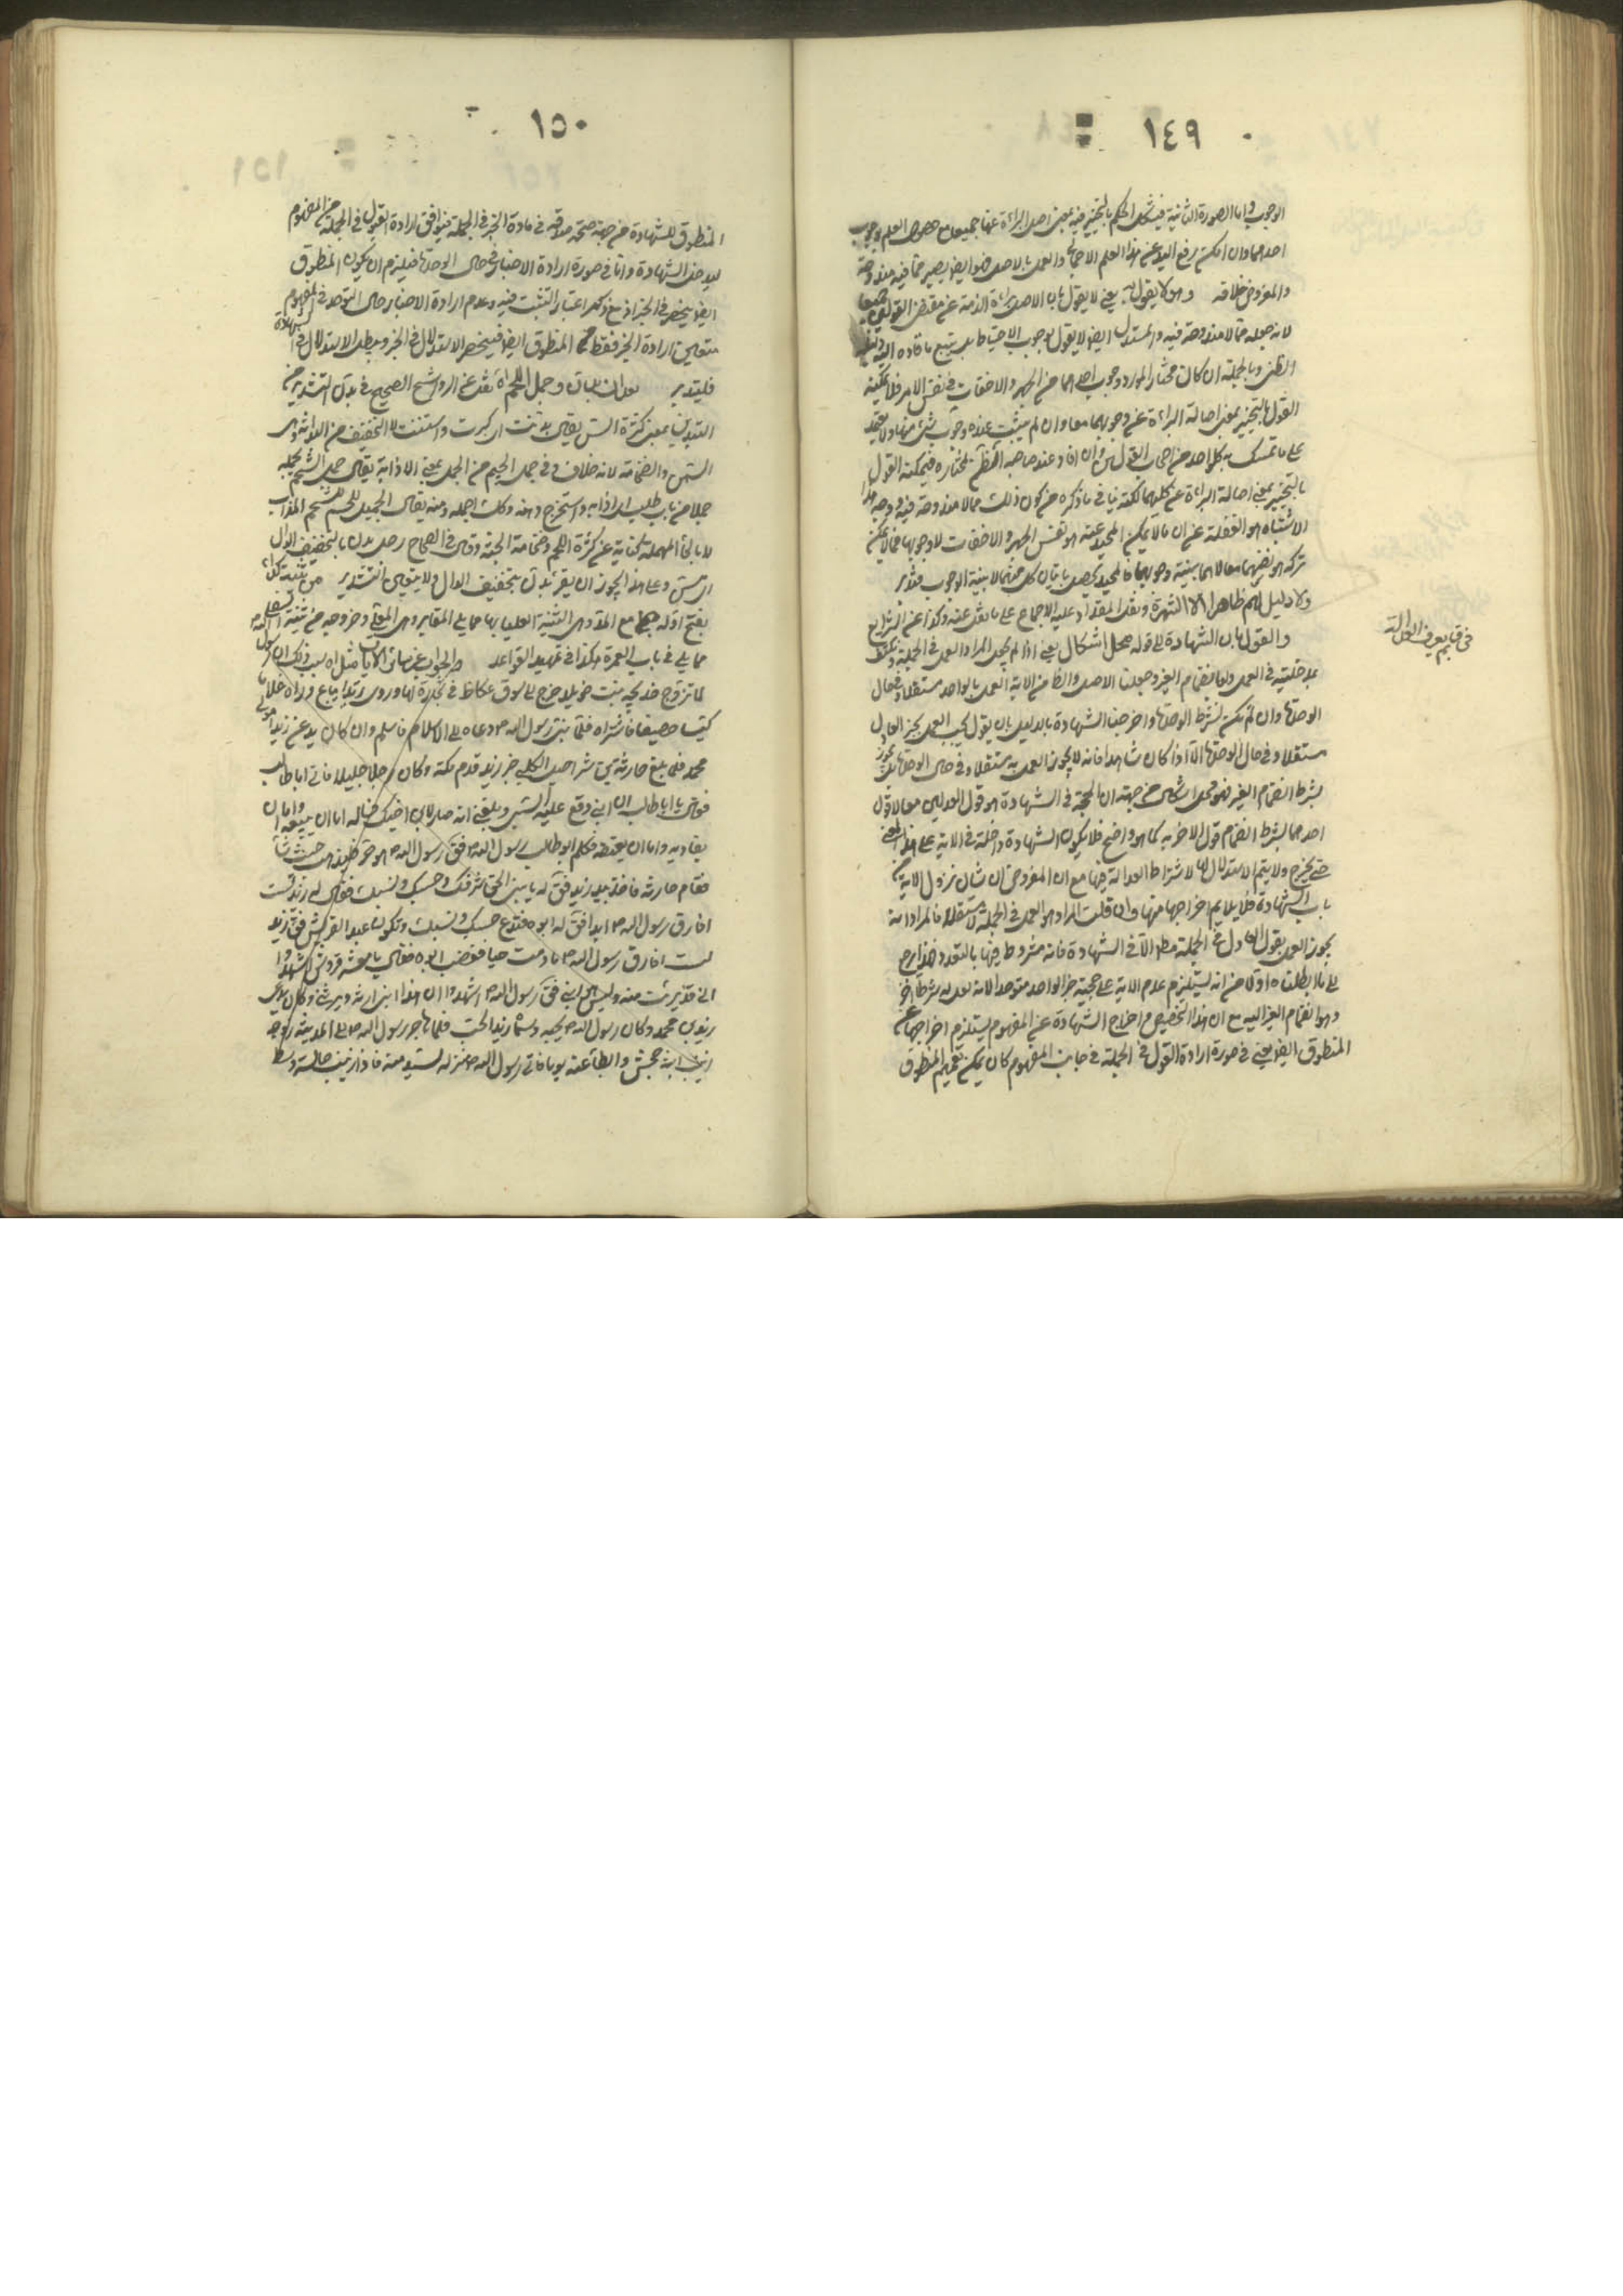 ١٤٩
الوجوب واما الصورة الثانية فيشكل الحكم بالتخيير فيه بمعنى اصل البراءة عنها جميعا مع حصول العلم بوجوب
احدهما وان امكن رفع اليد عن هذا العلم الاجمالي والعمل بالاصل فهو ايضا يصير مما فيه مندوحة
والمفروض خلافه وهو لا يقول به يعني لا يقول بان الاصل براءة الذمة عن مقتضى القولين جميعا
لانه جعله مما لا مندوحة فيه والمستدل ايضا لا يقول بوجوب الاحتياط بل يتبع ما قاده اليه
الظن وبالجملة ان كان مختار المورد وجوب احدهما من الجهر والاخفات في نفس الامر فلا يمكنه
القول بالتخيير بمعنى اصالة البراءة عن وجوبهما معا وان لم يثبت عنده وجوب شئ منهما ولا يعتمد
على ما تمسك به كل واحد من اصحاب القولين وان افاد عند صاحبه الظن بمختاره فيمكنه القول
بالتخيير بمعنى اصالة البراءة عن كليهما لكنه ينافي ما ذكره من كون ذلك مما لا مندوحة فيه ووجه هذا
الاشتباه هو الغفلة عن ان ما لا يمكن المحيد عنه هو نفس الجهر والاخفات لا وجوبهما فما لا يمكن
تركه هو نفسهما معا لا هما بنية وجوبهما فالمحيد يحصل باتيان كل منهما لا بنية الوجوب فتدبر
ولا دليل لهم ظاهرا الا الشهرة ونقل المقداد عليه الاجماع على ما نقل عنه وكذا عن الشرايع
والقول بان الشهادة الى قوله محل اشكال يعني اذا لم يجعل المراد العمل في الجملة
في العمل ولو بانضمام الغير وجعلنا الاصل والظاهر من الاية العمل بالواحد مستقلا وفي حال
الوحدة وان لم نكن نشترط الوحدة واخرجنا الشهادة بالدليل بان يقول يجب العمل بخبر العادل
مستقلا وفي حال الوحدة الا اذا كان شاهدا فانه لا يجوز العمل به مستقلا وفي حال الوحدة بل يجوز
بشرط انضمام الغير فهو محل اشكال من جهة ان الحجة في الشهادة هو قول العدلين معا لا قول
احدهما بشرط انضمام قول الاخر به كما هو واضح فلا يكون الشهادة داخلة في الاية على هذا المعنى
حتى يخرج ولا يتم الاستدلال بها لاشتراط العدالة فيها مع ان المفروض ان شان نزول الاية من
باب الشهادة فلا يلايم اخراجها منها وان قلت المراد هو العمل في الجملة لا مستقلا فالمراد انه
يجوز العمل بقول العادل في الجملة مطلقا الا في الشهادة فانه مشروط فيها بالتعدد وهذا يرجع
الى ما ابطلناه اولا من انه يستلزم عدم دلالة الاية على حجية خبر الواحد متوحدا لانه لعله بشرط اخر
وهو انضمام الغير اليه مع ان هذا التخصيص واخراج الشهادة عن المفهوم يستلزم اخراجها عن
المنطوق ايضا يعني في صورة ارادة القول في الجملة في جانب المفهوم كان يمكن تعميم المنطوق
في قائم يعرف العدالة
١٥٠
المنطوق للشهادة من جهة صحة صدقه في مادة الخبر في الجملة فيوافق ارادة القول في الجملة من المفهوم
الشهادة واما في صورة ارادة الاخبار في حال الوحدة فيلزم ان يكون المنطوق
ايضا ينحصر في الخبر اذ مع ذكر اعتبار التثبت فيه وعدم ارادة الاخبار حال التوحد في المفهوم
يتعين ارادة الخبر فقط في المنطوق ايضا فينحصر الاستدلال في الخبر ويبطل الاستدلال في الشهادة
فليتدبر وحمل اللحم اه نقل عن الرواشح الصحيح في بدن التشديد من
التبدين بمعنى كثرة السن يقال بدنت اي كبرت واسننت لا التخفيف من البدانة وهي
السمن والضخامة لانه خلاف وفي جمل الجيم من الجمل بمعنى الاذابة يقال جمل الشحم يجمله
جملا من باب طلب اي اذابه واستخرج دهنه وكذلك اجمله ومنه يقال الجميل للشحم المذاب
لا بالحاء المهملة كناية عن كثرة اللحم وضخامة الجثة وقال في الصحاح رجل بدن بالتخفيف الدال
اي مسن وعلى هذا يجوز ان يقرء بدن بتخفيف الدال ولا يتعين التشديد من ثنية كداء
بفتح اوله مع المد وهي الثنية العليا بها مما يلي المقابر وهي المعلى وخروجه من ثنية السفلى
مما يلي باب العمرة هكذا في تمهيد القواعد والجواب عن سائر الايات مثل اه سبب ذلك ان رسول الله ص
لما تزوج خديجه بنت خويلد خرج الى سوق عكاظ في تجارة لها وراى زيدا يباع وراه غلاما
كيسا حصيفا فاشتراه فلما نبئ رسول الله ص دعاه الى الاسلام فاسلم وكان يدعى زيدا مولى
محمد فلما بلغ حارثة بن شراحيل الكلبي خبر زيد قدم مكة وكان رجلا جليلا فاتى ابا طالب
فقال يا ابا طالب ان ابني وقع عليه السبي وبلغني انه صار لابن اخيك فساله اما ان يبيعه واما ان
يفاديه واما ان يعتقه فكلم ابو طالب رسول الله ص فقال رسول الله ص هو حر فليذهب حيث شاء
فقام حارثه فاخذ بيد زيد فقال له يا بني الحق بشرفك وحسبك ونسبك فقال له زيد لست
افارق رسول الله ص ابدا فقال له ابوه فتدع حسبك ونسبك وتكون عبدا لقريش فقال زيد
لست افارق رسول الله ص ما دمت حيا فغضب ابوه فقال يا معشر قريش اشهدوا
اني قد برئت منه وليس هو ابني فقال رسول الله ص اشهدوا ان هذا ابني ارثه ويرثني وكان يدعى
زيد بن محمد وكان رسول الله ص يحبه وسماه زيد الحب فلما هاجر رسول الله ص الى المدينة زوجه
زينب ابنة جحش وابطأ عنه يوما فاتى رسول الله ص منزله ليسئل عنه فاذا زينب جالسة وسط